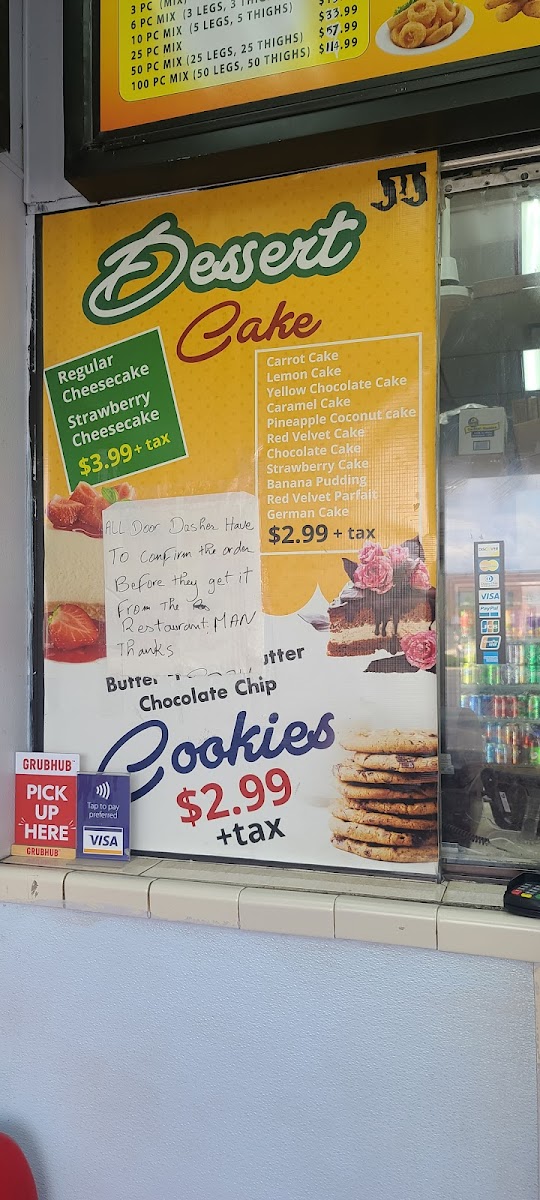 3 PC (MIX)
6 PC MIX (3 LEGS, 3 THIGHS)
10 PC MIX (5 LEGS, 5 THIGHS)
25 PC MIX $33.99
50 PC MIX (25 LEGS, 25 THIGHS) $67.99
100 PC MIX (50 LEGS, 50 THIGHS) $114.99
JJ
Dessert
Cake
Regular
Cheesecake
Strawberry
Cheesecake
$3.99 + tax
Carrot Cake
Lemon Cake
Yellow Chocolate Cake
Caramel Cake
Pineapple Coconut cake
Red Velvet Cake
Chocolate Cake
Strawberry Cake
Banana Pudding
Red Velvet Parfait
German Cake
$2.99 + tax
ALL Door Dasher Have
To confirm the order
Before they get it
From The
Restaurant MAN
Thanks
Butter utter
Chocolate Chip
Cookies
$2.99
+tax
GRUBHUB
PICK
UP
HERE
GRUBHUB
Tap to pay
preferred
VISA
DISCOVER
VISA
PayPal